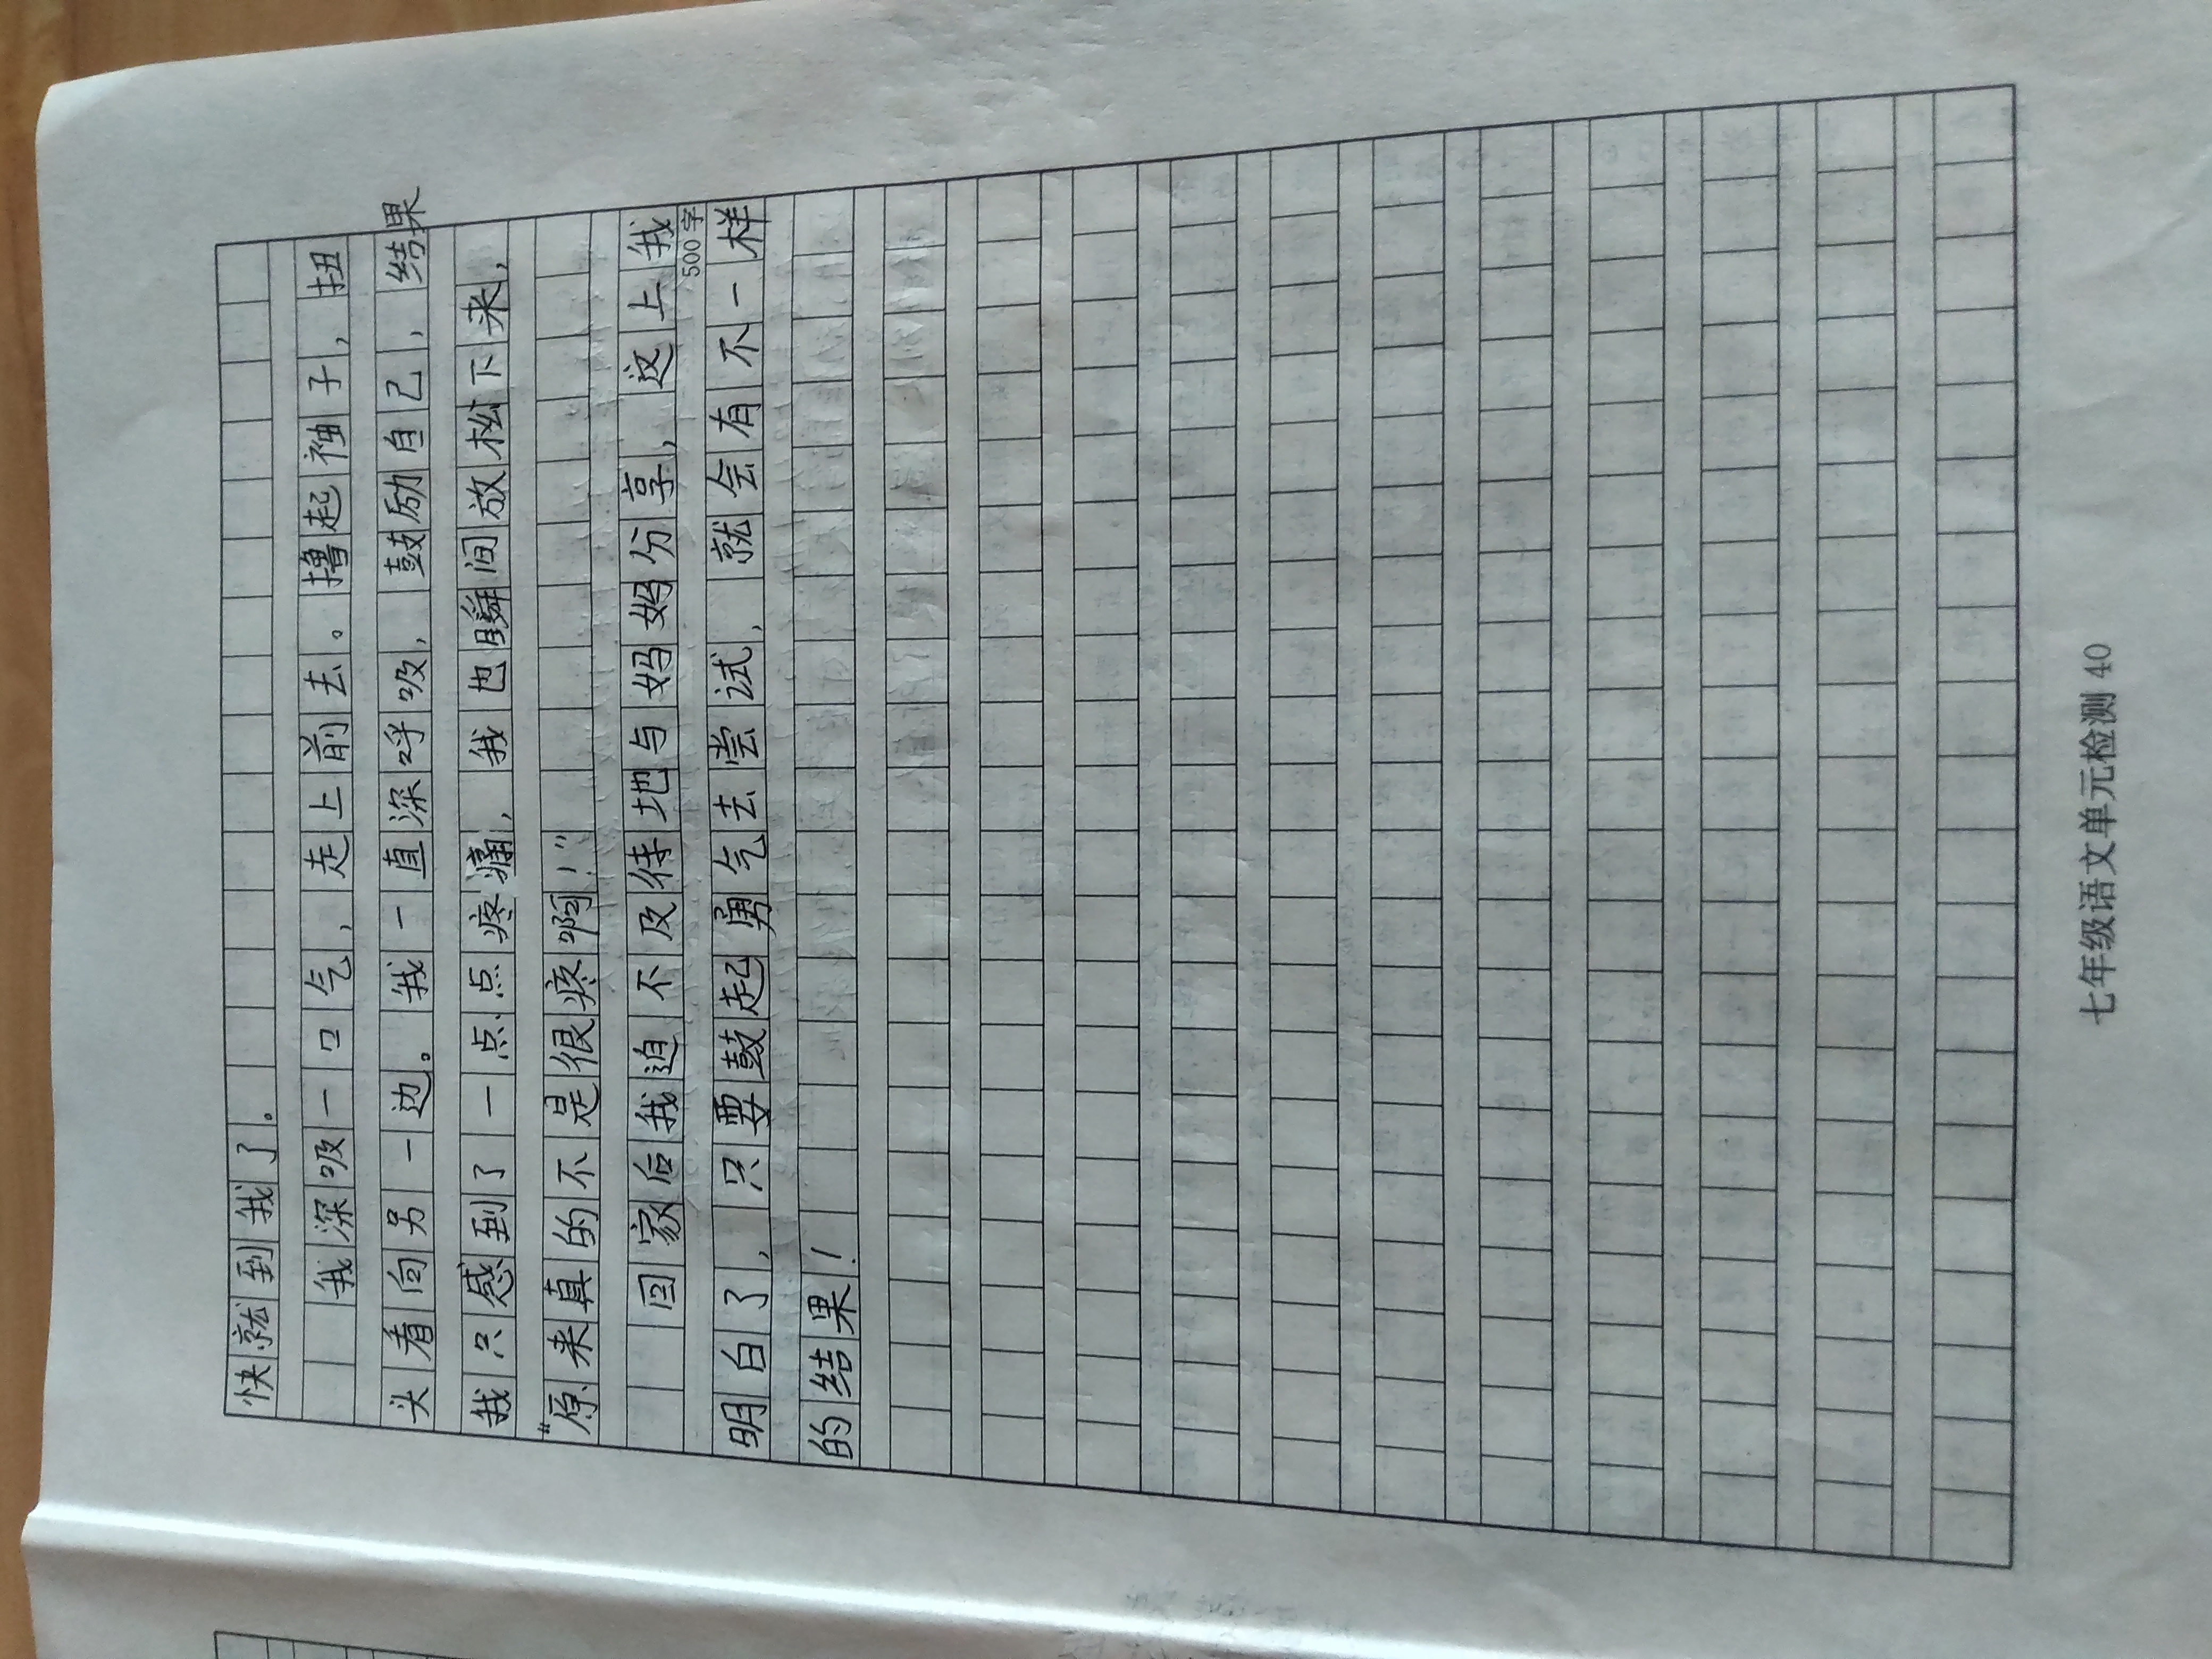 快就到我了。
我深吸一口气，走上前去。撸起袖子，扭
头看向另一边。我一直深呼吸，鼓励自己，结果
我只感到了一点点疼痛，我也瞬间放松下来，
“原来真的不是很疼啊！”
回家后我迫不及待地与妈妈分享，这上我
500字
明白了，只要鼓起勇气去尝试，就会有不一样
的结果！
七年级语文单元检测 40